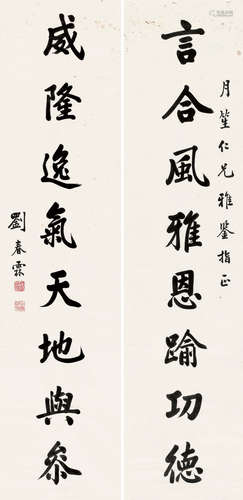 月笙仁兄雅鉴指正
言合風雅恩踰功德
威隆逸氣天地與參
劉春霖